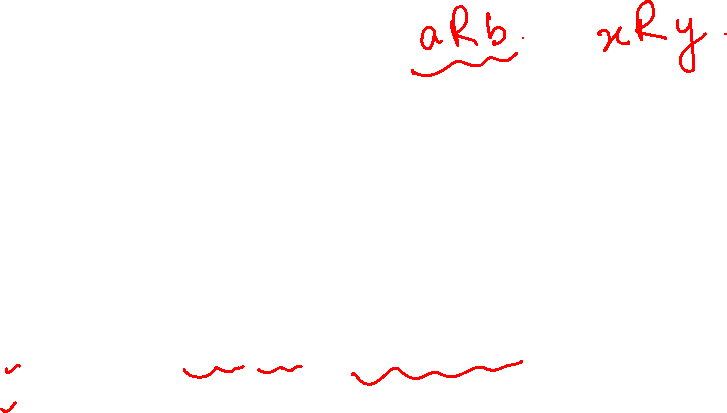 aRb. xRy.